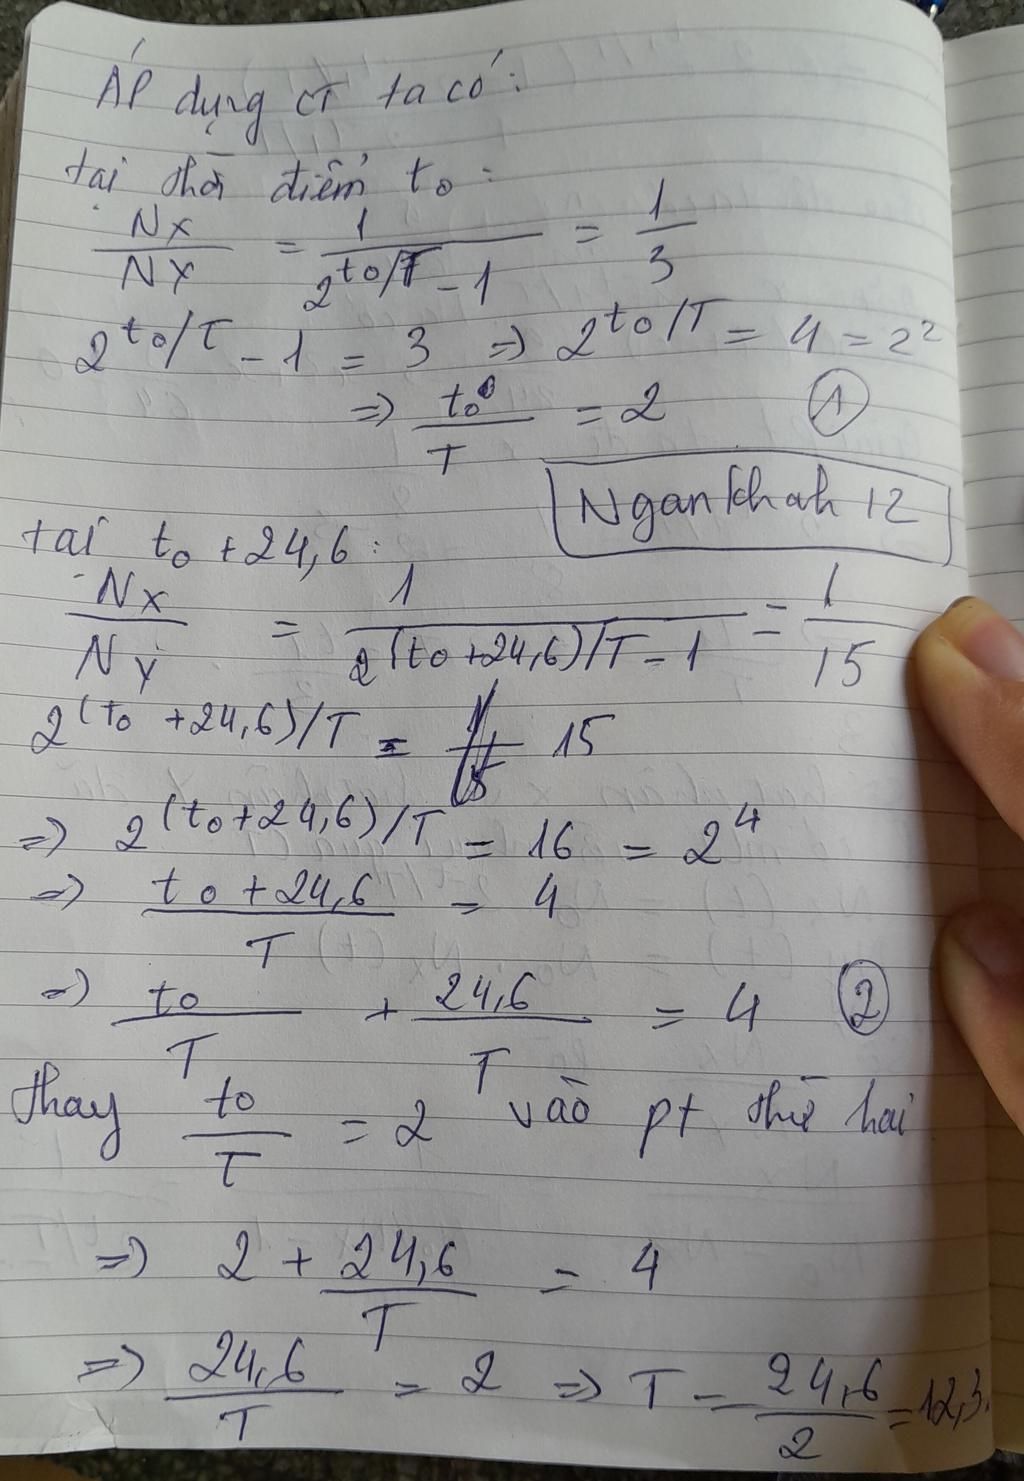 ÁP dụng CT ta có:
tại thời điểm to:
Nx/NY = 1/(2^to/T - 1) = 1/3
2^to/T - 1 = 3 => 2^to/T = 4 = 2^2
=> to/T = 2 ①
Ngankhah 12
tại to + 24,6:
Nx/NY = 1/(2^(to+24,6)/T - 1) = 1/15
2^(to +24,6)/T = 15
=> 2^(to+24,6)/T = 16 = 2^4
=> (to + 24,6)/T = 4
=> to/T + 24,6/T = 4 ②
thay to/T = 2 vào pt thứ hai
=> 2 + 24,6/T = 4
=> 24,6/T = 2 => T = 24,6/2 = 12,3.